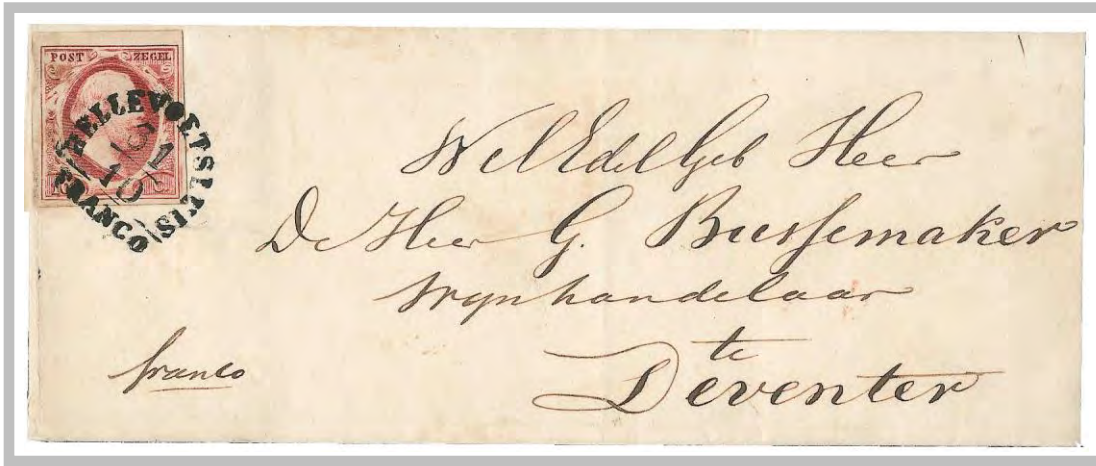 POST ZEGEL
HELLEVOETSLUIS
FRANCO
WelEdelGeb Heer
De Heer G. Bussemaker
Wynhandelaar
te
Deventer
franco